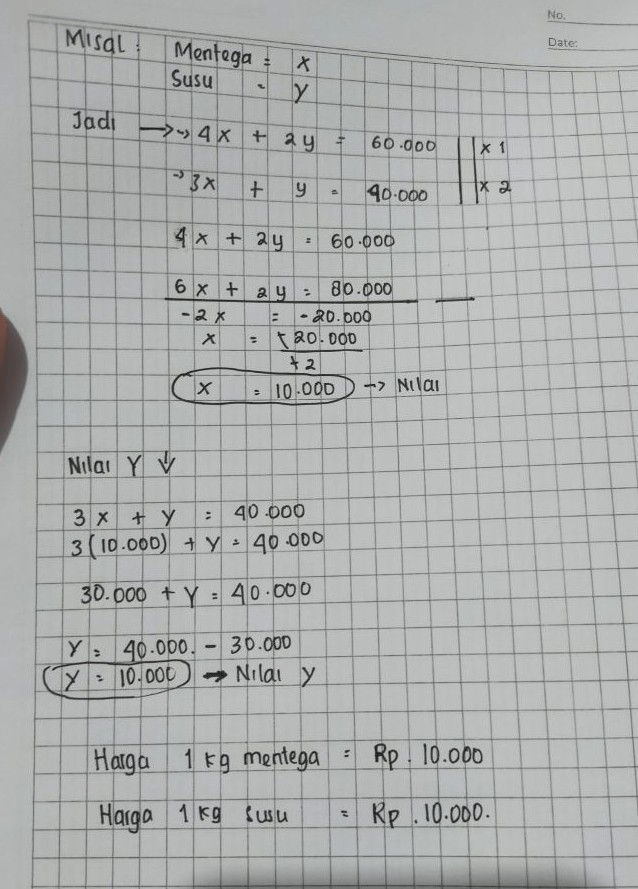 No.
Date:
Misal : Mentega = x
Susu = y
Jadi → → 4x + 2y = 60.000 || x 1
→ 3x + y = 40.000 || x 2
4x + 2y = 60.000
6x + 2y = 80.000 —
-2x = -20.000
x = +20.000
+2
x = 10.000 → Nilai
Nilai Y ↓
3x + y = 40.000
3(10.000) + y = 40.000
30.000 + y = 40.000
y = 40.000. - 30.000
y = 10.000 → Nilai y
Harga 1 kg mentega = Rp. 10.000
Harga 1 kg susu = Rp. 10.000.